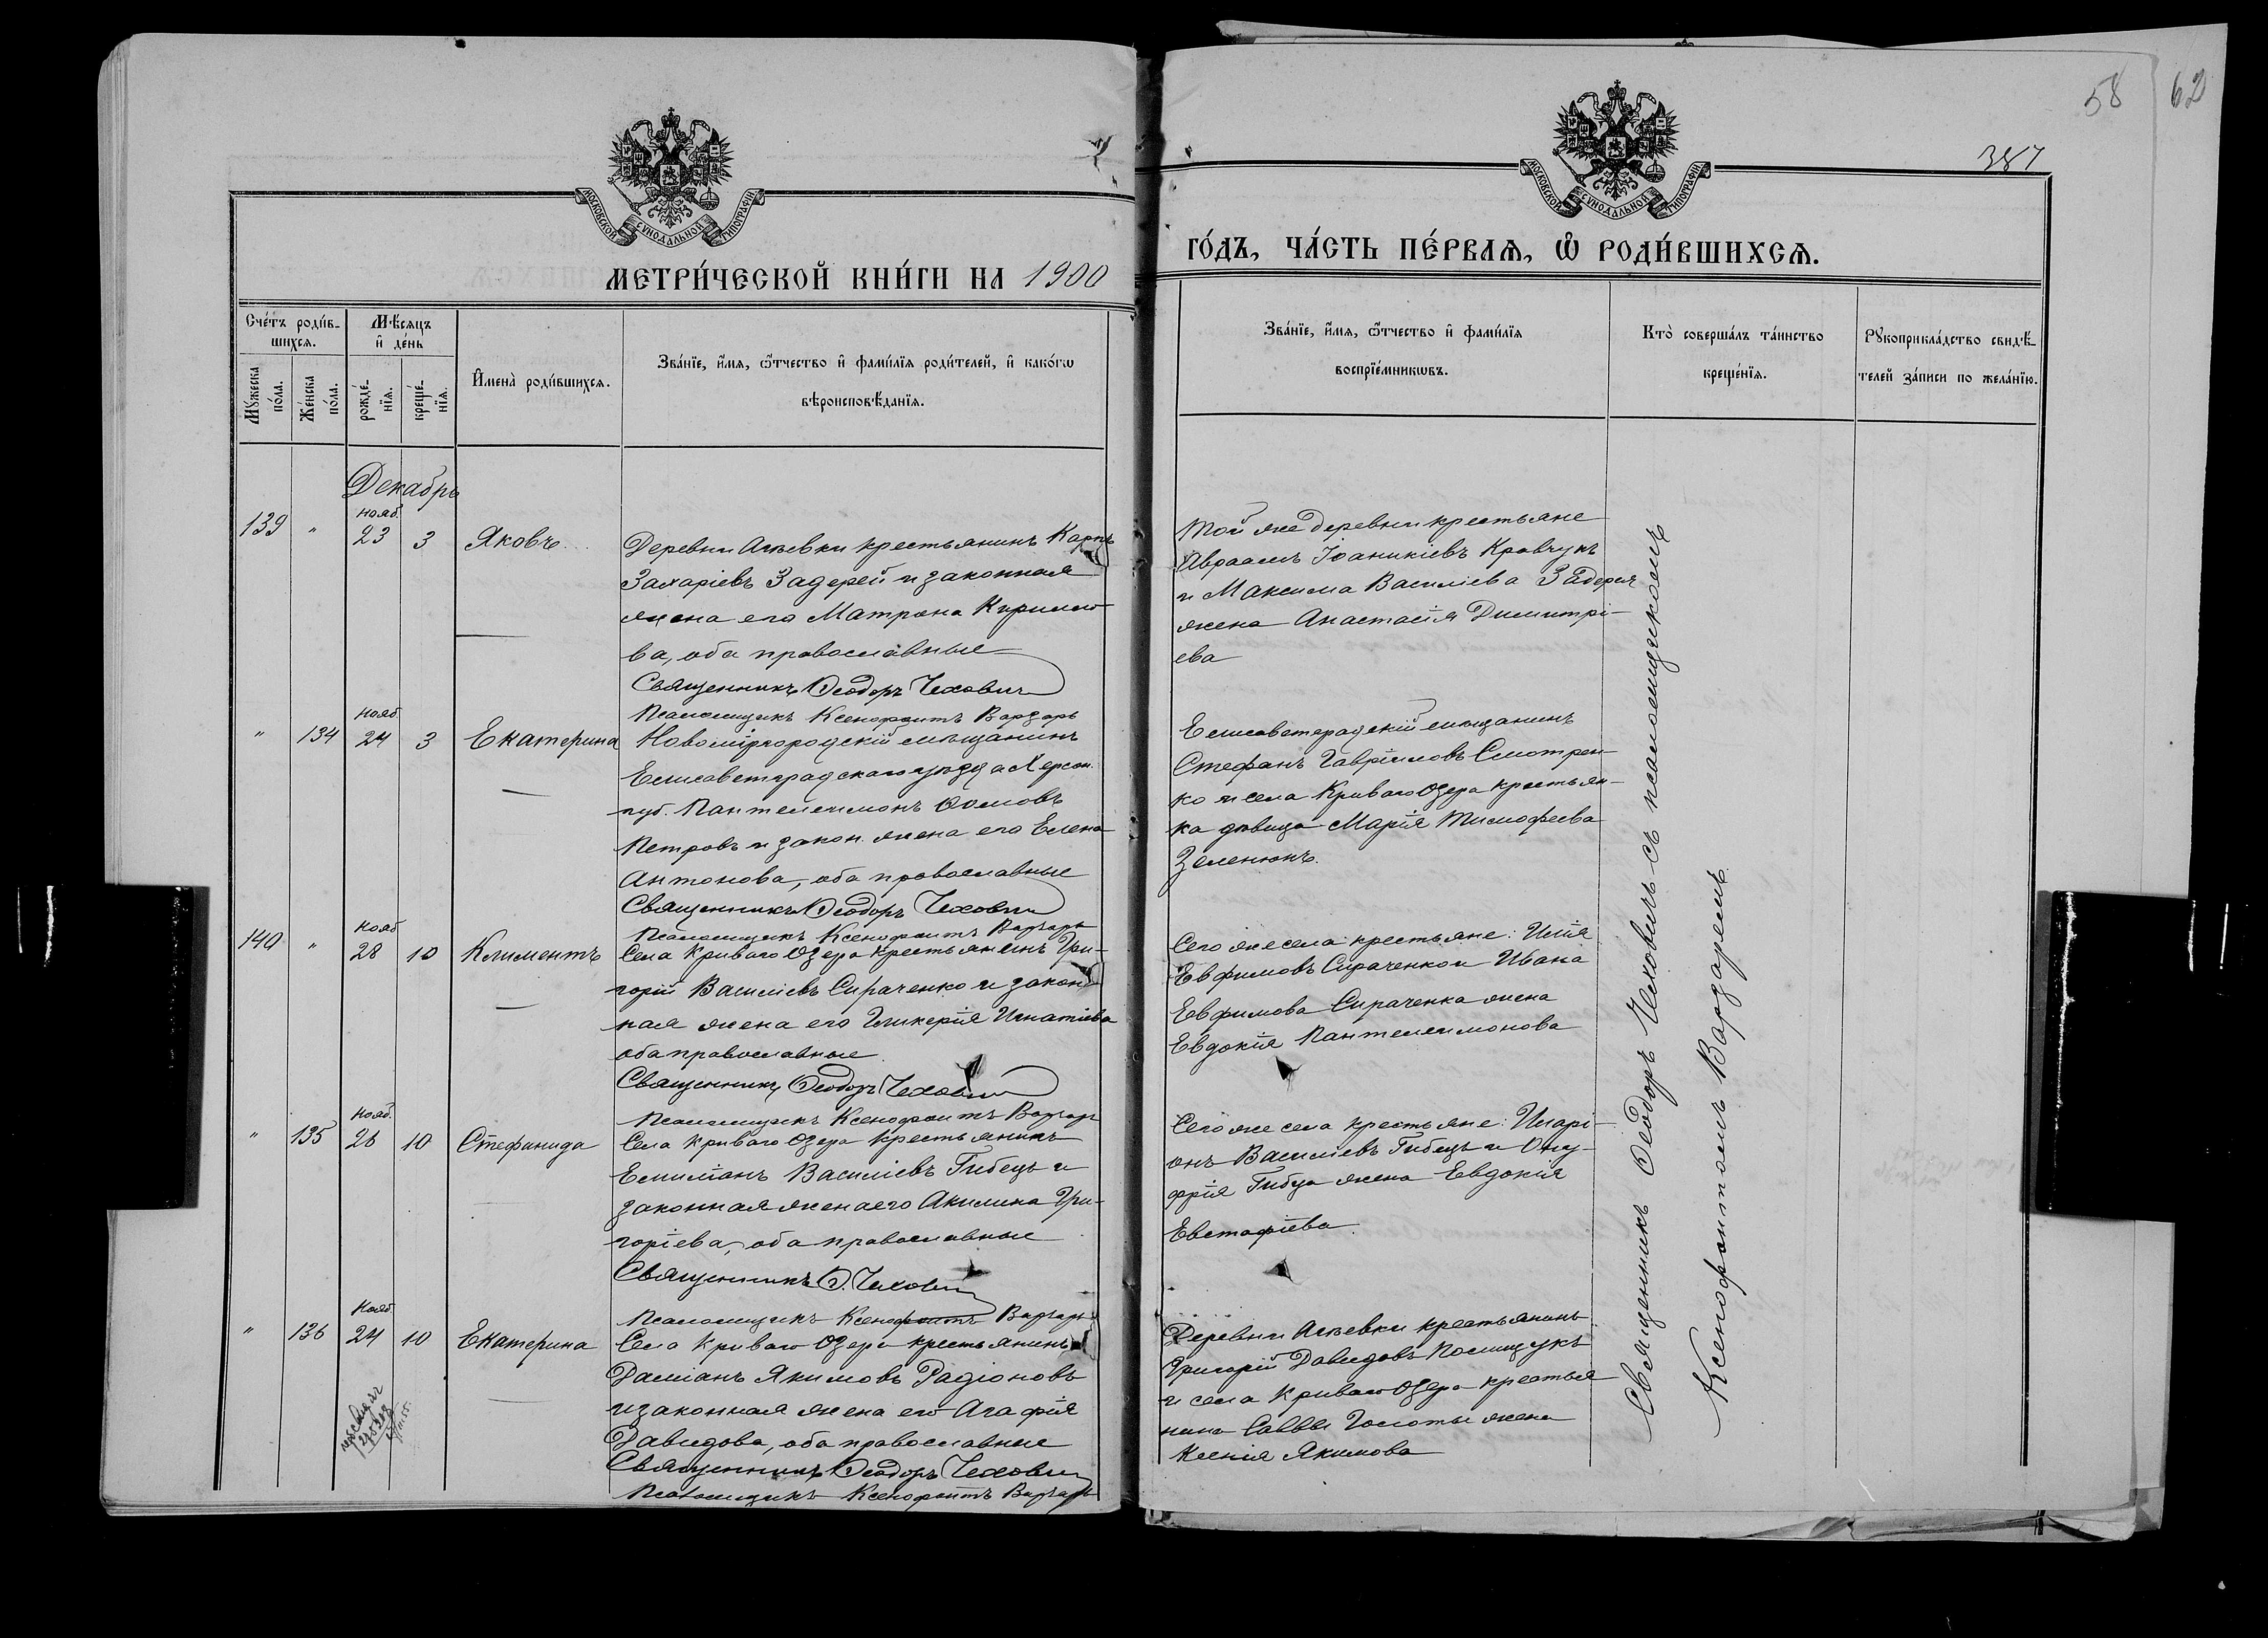 58
62
387
МОСКОВСКОЙ СѴНОДАЛЬНОЙ ТИПОГРАФІИ
МОСКОВСКОЙ СѴНОДАЛЬНОЙ ТИПОГРАФІИ
МЕТРИ́ЧЕСКОЙ КНИ́ГИ НА 1900
ГО́ДЪ, ЧА́СТЬ ПЕ́РВАѦ, Ѽ РОДИ́ВШИХСѦ.
Сче́тъ роди́в-
шихсѧ.
Мѣ́сѧцъ
и҆ де́нь
Мꙋ́жеска
по́ла.
Же́нска
по́ла.
рожде́-
нїѧ.
креще́-
нїѧ.
И҆мена̀ роди́вшихсѧ.
Зва́нїе, и҆́мѧ, ѻ҆́тчество и҆ фами́лїѧ роди́телей, и҆ како́гѡ
вѣроисповѣ́данїѧ.
Зва́нїе, и҆́мѧ, ѻ҆́тчество и҆ фами́лїѧ
воспрїе́мникѡвъ.
Кто̀ соверша́лъ та́инство
креще́нїѧ.
Рꙋкоприкла́дство свидѣ́-
телей за́писи по жела́нїю.
Декабрь
139 " нояб. 23 3 Яковъ
Деревни Агѣевки крестьянинъ Карпъ
Захаріевъ Задерей и законная
жена его Матрона Кирилло-
ва, оба православные
Священникъ Ѳеодоръ Чехович
Псаломщикъ Ксенофонтъ Вардарь
Той же деревни крестьяне
Авраамъ Іоаникіевъ Кравчукъ
и Максима Василіева Задерея
жена Анастасія Димитрі-
ева
" 134 нояб. 24 3 Екатерина
Новомиргородскій мѣщанинъ
Елисаветградскаго уѣзда Херсон.
губ. Пантелеимонъ
Петровъ и закон. жена его Елена
Антонова, оба православные
Священникъ Ѳеодоръ Чехович
Псаломщикъ Ксенофонтъ Вардарь
Елисаветградскій мѣщанинъ
Стефанъ Гавріиловъ Смотрен-
ко и села Криваго Озера крестьян-
ка дѣвица Марія Тимофеева
Зеленюкъ.
140 " нояб. 28 10 Климентъ
Села Криваго Озера крестьянинъ Гри-
горій Василіевъ Сираченко и закон-
ная жена его Гликерія Игнатіева
оба православные
Священникъ Ѳеодоръ Чехович
Псаломщикъ Ксенофонтъ Вардарь
Сего же села крестьяне: Илія
Евфимовъ Сираченко и Ивана
Евфимова Сираченка жена
Евдокія Пантелеимонова
" 135 нояб. 26 10 Стефанида
Села Криваго Озера крестьянинъ
Емиліанъ Василіевъ Гибецъ и
законная жена его Акилина Гри-
горіева, оба православные
Священникъ Ѳ. Чехович
Псаломщикъ Ксенофонтъ Вардарь
Сего же села крестьяне: Иларі-
онъ Василіевъ Гибецъ и Ону-
фрія Гибца жена Евдокія
Евстафіева.
" 136 нояб. 24 10 Екатерина
Села Криваго Озера крестьянинъ
Даміанъ Якимовъ Радіоновъ
и законная жена его Агафія
Давидова, оба православные
Священникъ Ѳеодоръ Чехович
Псаломщикъ Ксенофонтъ Вардарь
Деревни Агѣевки крестьянинъ
Григорій Давидовъ Полищукъ
и села Криваго Озера крестья
нина Саввы Голоты жена
Ксенія Якимова
Священникъ Ѳеодоръ Чеховичъ съ псаломщикомъ
Ксенофонтомъ Вардаремъ